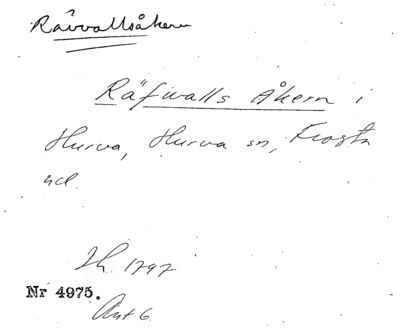 Rävvallsåkern
Räfwalls Åkern i
Hurva, Hurva sn, Frosta
hd.
Sk. 1797
Nr 4975.
Akt 6.